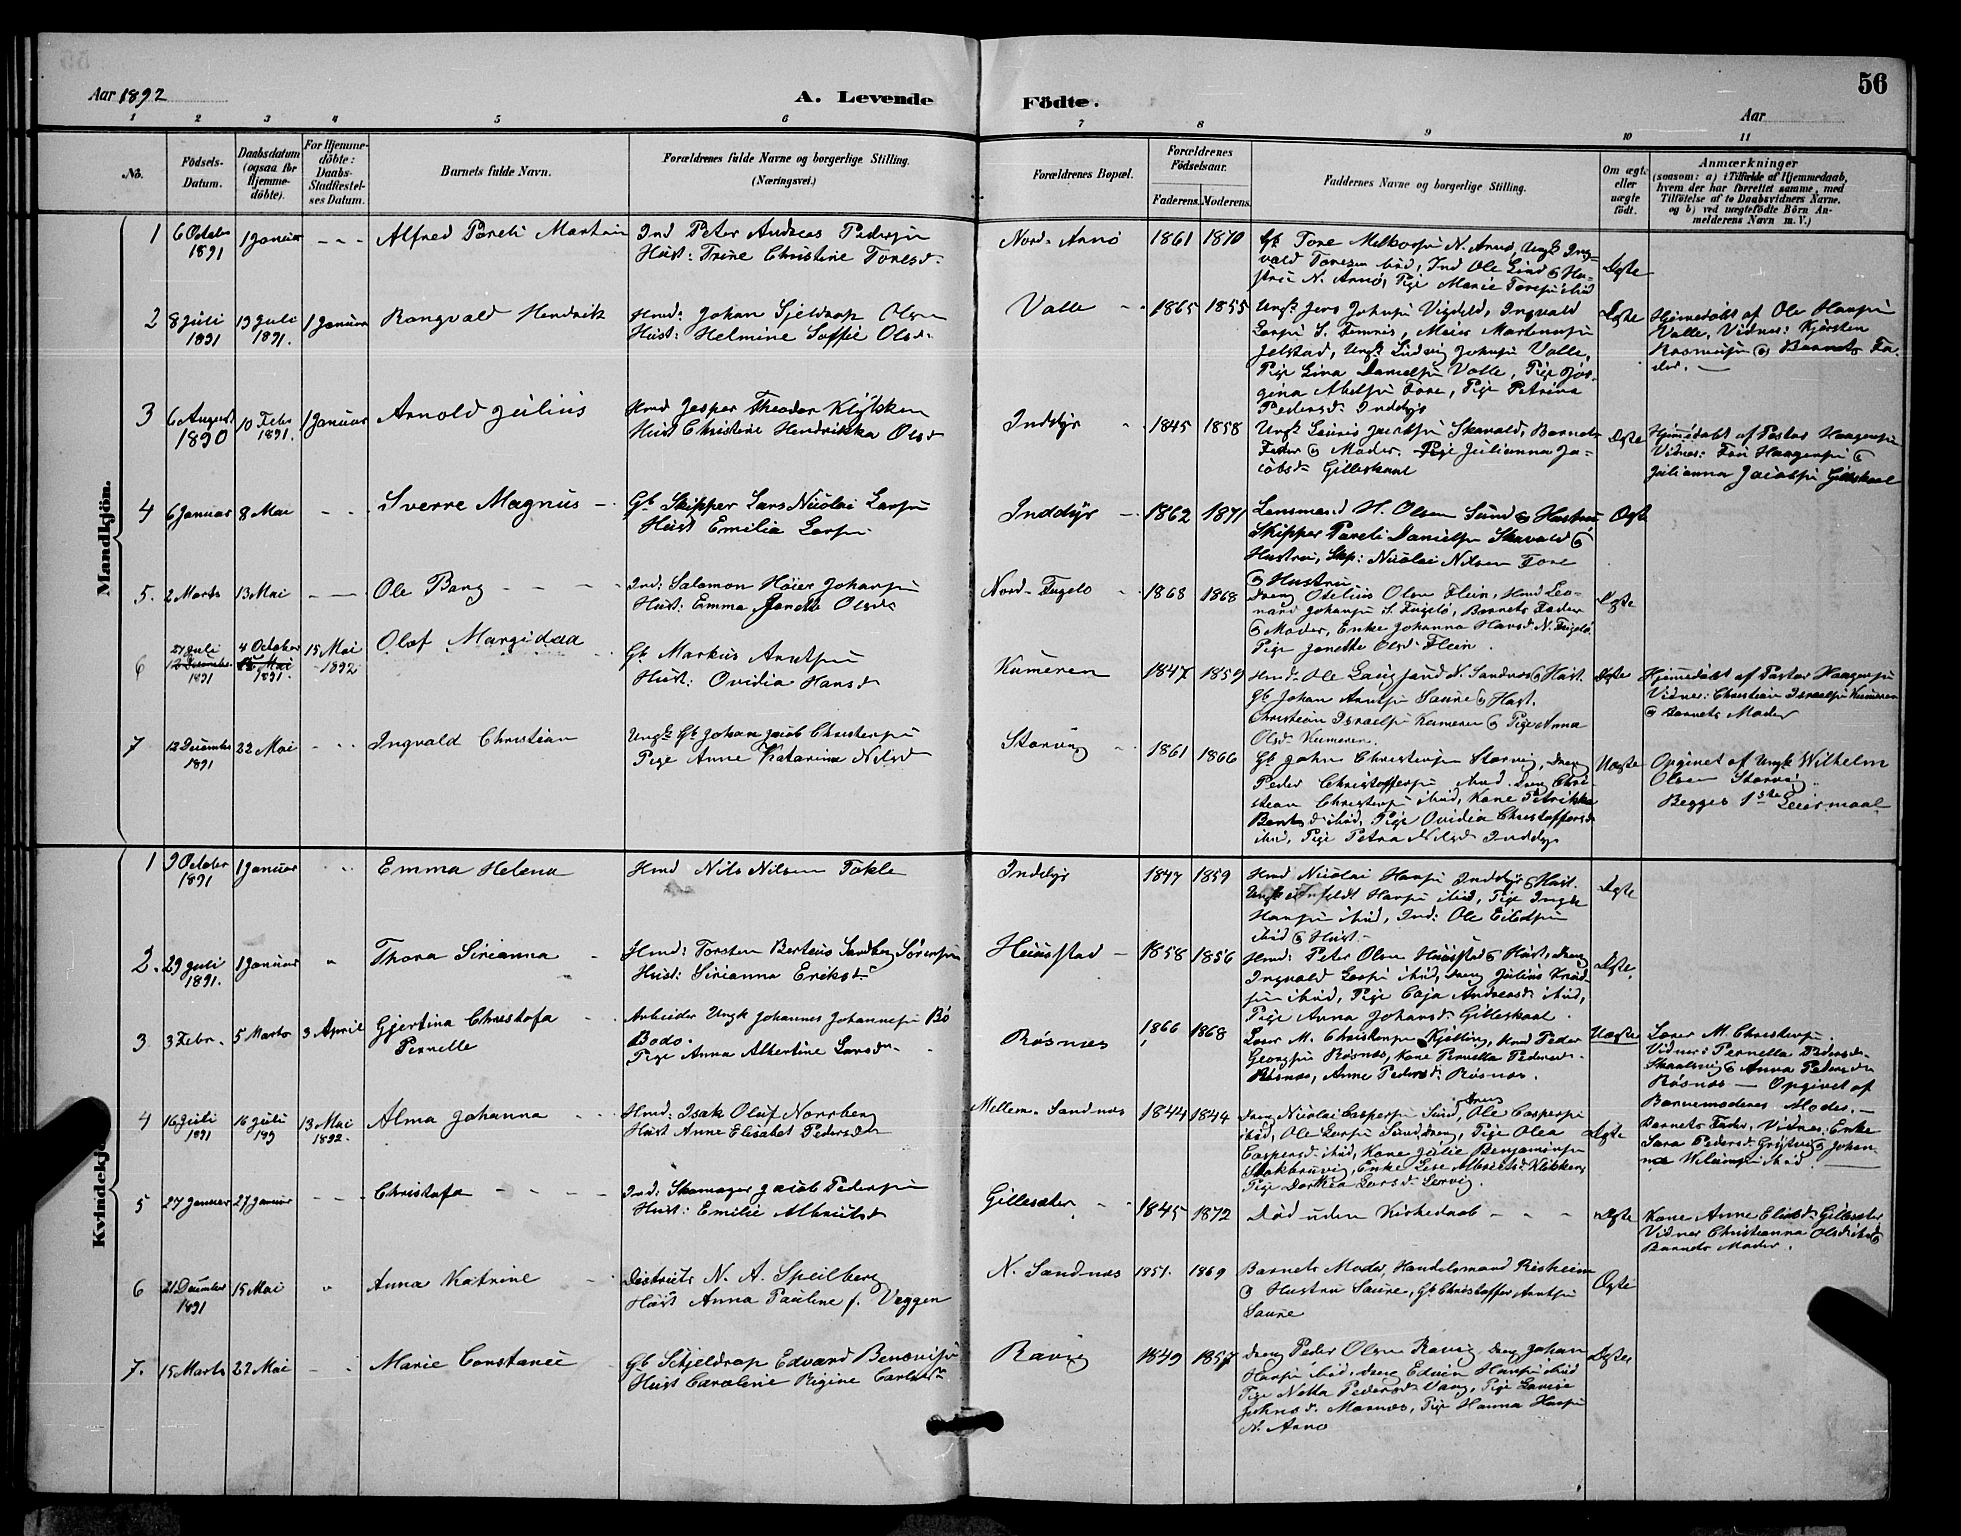 56
Aar 1892
A. Levende Födte.
Aar
1 2 3 4 5 6 7 8 9 10 11
No.
Födsels-Datum.
Daabsdatum (ogsaa for Hjemme-döbte).
For Hjemme-döbte: Daabs-Stadfæstel-ses Datum.
Barnets fulde Navn.
Forældrenes fulde Navne og borgerlige Stilling. (Næringsvei.)
Forældrenes Bopæl.
Forældrenes Födselsaar.
Faderens. Moderens.
Faddernes Navne og borgerlige Stilling.
Om ægte eller uægte födt.
Anmærkninger
(saasom: a) i Tilfælde af Hjemmedaab,
hvem der har forrettet samme, med
Tilföielse af to Daabsvidners Navne.
og b) ved uægtefödte Börn An-
melderens Navn m. V.)
Mandkjön.
1 6 Octobr 1891 1 Januar - - - Alfred Pareli Martin
Ind Peter Andreas Pedersen
Hust: Trine Christine Toresd.
Nord-Arnö 1861 1870
Gb Tore Melkersen N. Arnö, Ungk Ing-
vald Toresen ibid, Ind Ole Lind & Hu-
stru N. Arnö, Pige Marie Toresen ibid
Ægte
2 8 Juli 1891 19 Juli 1891. 1 Januar Rangvald Hendrik
Hmd: Johan Sjeldrap Olsen
Hust: Helmine Soffie Olsd.
Valle - 1865 1855
Ungk Jens Johnsen Vigdel, Ingvald
Larsen S. Femris, Meier Martensen
Jelstad, Ungk Ludvig Johnsen Valle,
Pige Lina Danielsen Valle, Pige Jør-
gina Abelsen Fore, Pige Petrina
Pedersd. Inddyr
Ægte
Hjemmedøbt af Ole Hansen
Valle, Vidner: Kjersten
Rasmusen & Barnets Fa-
der. -
3 6 August 1890 10 Febr 1891. 1 Januar Arnold Julius
Hmd Jesper Theodor Klykken
Hust Christine Hendrikka Olsd
Inddyr - 1845 1858
Ungk Lauris Jacobsen Skavald, Barnets
Fader & Moder. Pige Julianna Ja-
cobsd. Gilleskaal
Ægte
Hjemmedøbt af Pastor Haagensen
Vidner: Fru Haagensen &
Julianna Jacobsen Gilleskaal
4 6 Januar 8 Mai - - Sverre Magnus -
Gb. Skipper Lars Nicolai Larsen
Hust Emilia Larsen
Inddyr - 1862 1871
Lensmand H. Olsen Sund & Hustru
Skipper Pareli Danielsen Skavald &
Hustru, Skp: Nicolai Nilsen Fore
& Hustru
Ægte
5. 2 Marts 13 Mai - - Ole Bang - - -
Ind: Salomon Høier Johansen
Hust: Emma Janette Olsd.
Nord-Fugelö - 1868 1868
Dreng Odelius Olsen Flein, Hmd Leo-
nard Johansen S. Fugelö, Barnets Fader
& Moder, Enke Johanna Hansd. N. Fugelö
Pige Janette Olsd. Flein.
Ægte
6 21 Juli 12 December 1891 4 October 15 Mai 1891. 15 Mai 1892 Olaf Margidad
Gb Markus Arntsen
Hust: Ovidia Hansd
Kumeren 1847 1859
Hmd. Ole Langsand N. Sandnes & Hust.
Gb Johan Arntsen Saure & Hust.
Christian Israelsen Kumeren & Pige Anna
Olsd. Kumeren.
Ægte
Hjemmedøbt af Pastor Haagensen
Vidner: Christian Israelsen Kumeren
& Barnets Moder
7 12 December 1891 22 Mai - - Ingvald Christian
Ungk Gb Johan Jacob Christersen
Pige Anne Katarina Nilsd
Storvig - 1861 1866
Gb John Christersen Storvig, Dreng
Peder Christoffersen ibid. Dreng Chri-
stian Christersen ibid, Kone Petrikka
Bentsd. ibid, Pige Ovidia Christoffersd
ibid, Pige Petra Nilsd Inddyr
Uægte
Opgivet af Ungk Wilhelm
Olsen Storvig
Begges 1ste Leiermaal
Kvindekjön.
1 9 Octobr 1891 1 Januar Emma Helena
Hmd Nils Nilsen Takle
Inddyr 1847 1859
Hmd Nicolai Hansen Inddyr & Hust.
Hansen ibid, Pige Inger
Hansen ibid, Ind: Ole Eilertsen
ibid & Hust -
Ægte
2. 29 Juli 1891. 1 Januar Thora Sirianna
Hmd: Torsten Berteus Sandberg Sörensen
Hust: Sirianna Eriksd.
Huusstad - 1858 1856
Hmd: Peter Olsen Huusstad & Hust, Dreng
Ingvald Larsen ibid, Dreng Julius Knud-
sen ibid, Pige Caja Andreasd. ibid,
Pige Anna Johansd. Gilleskaal.
Ægte.
3 3 Febr. 5 Marts 3 April Gjertina Christofa Pernelle
Arbeider Ungk Johannes Johannesen Bö
Bodö.
Pige Anna Albertine Larsd. -
Røsnæs 1866 1868
Lærer M. Christensen Kjelling, Hmd Peder
Georgsen Røsnæs, Kone Pernella Pedersd.
Røsnæs, Anne Pedersd: Røsnæs.
Uægte
Lærer M. Christensen.
Vidner: Pernella Pedersd.
& Anna Pedersd
Røsnæs - Opgivet af
Barnemoderens Moder. -
4 16 Juli 1891 16 Juli 189 13 Mai 1892. Alma Johanna
Hmd: Isak Oluf Norrberg
Hust Anne Elisabet Pedersd
Mellem. Sandnæs 1844 1844
Dreng Nicolai Caspersen Sund, Dreng Ole Caspersen
ibid, Ole Larsen Sund, Dreng, Pige Olea
Caspersd. ibid, Kone Julie Benjaminsen
Enke Lise Albrictsd.
Pige Dorthea Larsd.
Ægte
Barnets Fader, Vidner: Enke
Sara Pedersd. & Johan-
na ibid.
5 27 Januar 27 Januar - - Christofa - - - -
Ind: Skomager Jacob Pedersen
Hust: Emilie Albrictsd
Gillesæter - 1845 1872
Død uden Kirkedaab - - -
Ægte
Kone Anne Eliasd. Gillesæter
Vidner Christianna Olsd. ibid &
Barnets Moder.
6 21 December 1891 15 Mai Anna Katrine
Districts N. A. Speilberg
Hust Anna Pauline f. Veggen
N. Sandnæs 1851. 1869
Barnets Moder, Handelsmand Risheim
& Hustru Saure, Gb Christoffer Arntsen
Saure
Ægte
7. 15 Marts 22 Mai - Marie Constance
Gb Schjeldrap Edvard Benonisen
Hust Caroline Regine Carlsd.
Ravig 1849 1857
Dreng Peder Olsen Ravig Dreng Johan
Hansen ibid, Dreng Edvin Hansen ibid
Pige Netta Pedersd. Vang, Pige Lovise
Johnsd. Marnæs, Pige Hanna Hansen
N. Arnö
Ægte